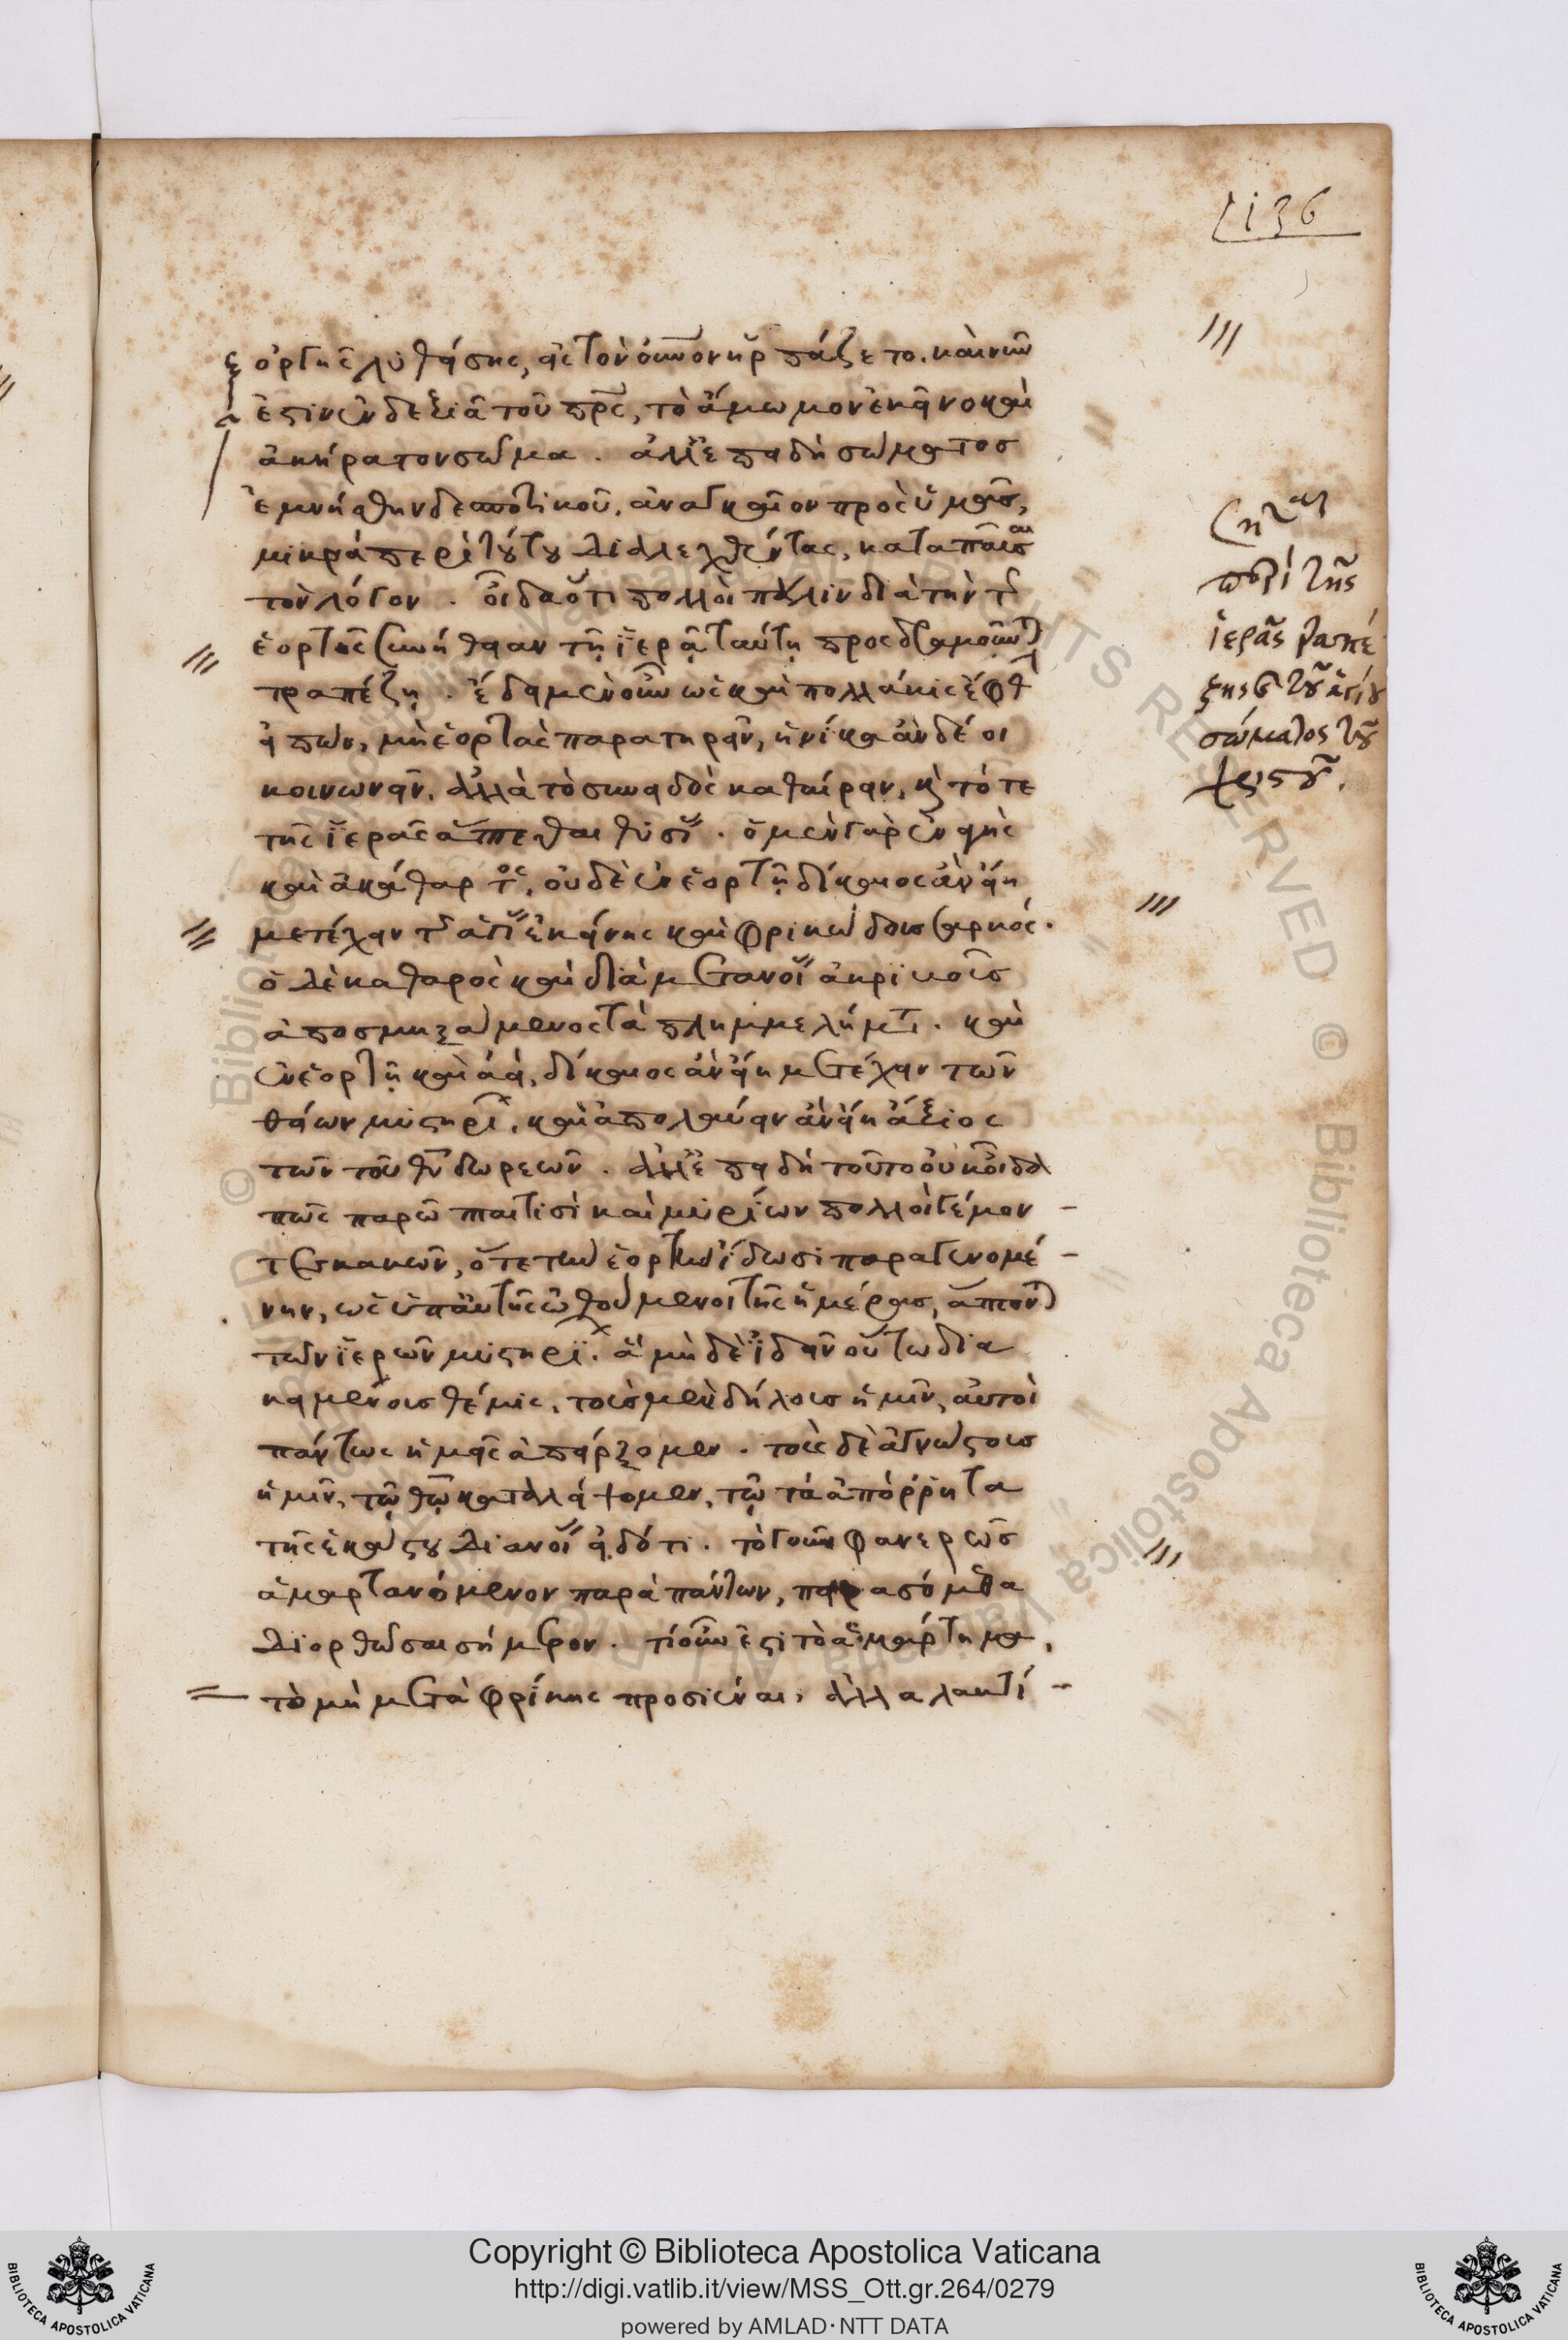 136
ὀργῆς λυθείσης, εἰς τὸν οὐνον ἡρπάζετο. καὶ νῦν
ἐστιν ἐν δεξιᾷ τοῦ πρς, τὸ ἄμωμον ἐκεῖνο καὶ
ἀκήρατον σῶμα. ἀλλ' ἐπειδὴ σώματος
ἐμνήσθην δεσποτικοῦ, ἀναγκαῖον πρὸς ὑμᾶς,
μικρὰ περὶ τούτου διαλεχθέντας, καταπαῦσαι
τὸν λόγον. οἶδα ὅτι πολλοὶ πάλιν διὰ τὴν τῆς
ἑορτῆς συνήθειαν τῇ ἱερᾷ ταύτῃ προσδραμοῦνται
τραπέζῃ. ἔδει μὲν οὖν ὡς καὶ πολλάκις ἔφθην
εἰπών, μὴ ἑορτὰς παρατηρεῖν, ἡνίκα ἂν δέοι
κοινωνεῖν, ἀλλὰ τὸ συνειδὸς καθαίρειν, καὶ τότε
τῆς ἱερᾶς ἅπτεσθαι θυσίας. ὁ μὲν γὰρ ἐναγὴς
καὶ ἀκάθαρτος, οὐδὲ ἐν ἑορτῇ δίκαιος ἂν εἴη
μετέχειν τῆς ἁγίας ἐκείνης καὶ φρικώδους σαρκός.
ὁ δὲ καθαρὸς καὶ διὰ μετανοίας ἀκριβοῦς
ἀποσμηξάμενος τὰ πλημμελήματα. καὶ
ἐν ἑορτῇ καὶ ἀεί, δίκαιος ἂν εἴη μετέχειν τῶν
θείων μυστηρίων, καὶ ἀπολαύειν ἂν εἴη ἄξιος
τῶν τοῦ θυ δωρεῶν. ἀλλ' ἐπειδὴ τοῦτο οὐκ οἶδα
πῶς παρῶπταί τισὶ καὶ μυρίων πολλοὶ γέμον
τες κακῶν, ὅτε τὴν ἑορτὴν ἴδωσι παραγενομέ
νην, ὡς ὑπ' αὐτῆς ὠθούμενοι τῆς ἡμέρας, ἅπτονται
τῶν ἱερῶν μυστηρίων. ἃ μὴ δὲ ἰδεῖν οὕτω δια
κειμένοις θέμις, τοὺς μὲν δήλους ἡμῖν, αὐτοὶ
πάντως ἡμεῖς ἀπείρξομεν. τοὺς δὲ ἀγνώστους
ἡμῖν, τῷ θῷ καταλείψομεν, τῷ τὰ ἀπόρρητα
τῆς ἑκάστου διανοίας εἰδότι. τὸ γοῦν φανερῶς
ἁμαρτανόμενον παρὰ πάντων, πειρασόμεθα
διορθῶσαι σήμερον. τί οὖν ἐστι τὸ ἁμάρτημα,
τὸ μὴ μετὰ φρίκης προσιέναι, ἀλλὰ λακτί
περὶ τῆς
ἱερᾶς τραπέ
ζης καὶ τοῦ ἁγίου
σώματος τοῦ
χριστοῦ.
Copyright © Biblioteca Apostolica Vaticana
http://digi.vatlib.it/view/MSS_Ott.gr.264/0279
powered by AMLAD·NTT DATA
BIBLIOTECA APOSTOLICA VATICANA
BIBLIOTECA APOSTOLICA VATICANA